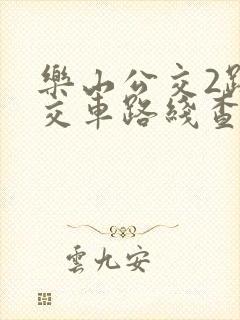 樂山公交2路
交車路綫查
雲九安